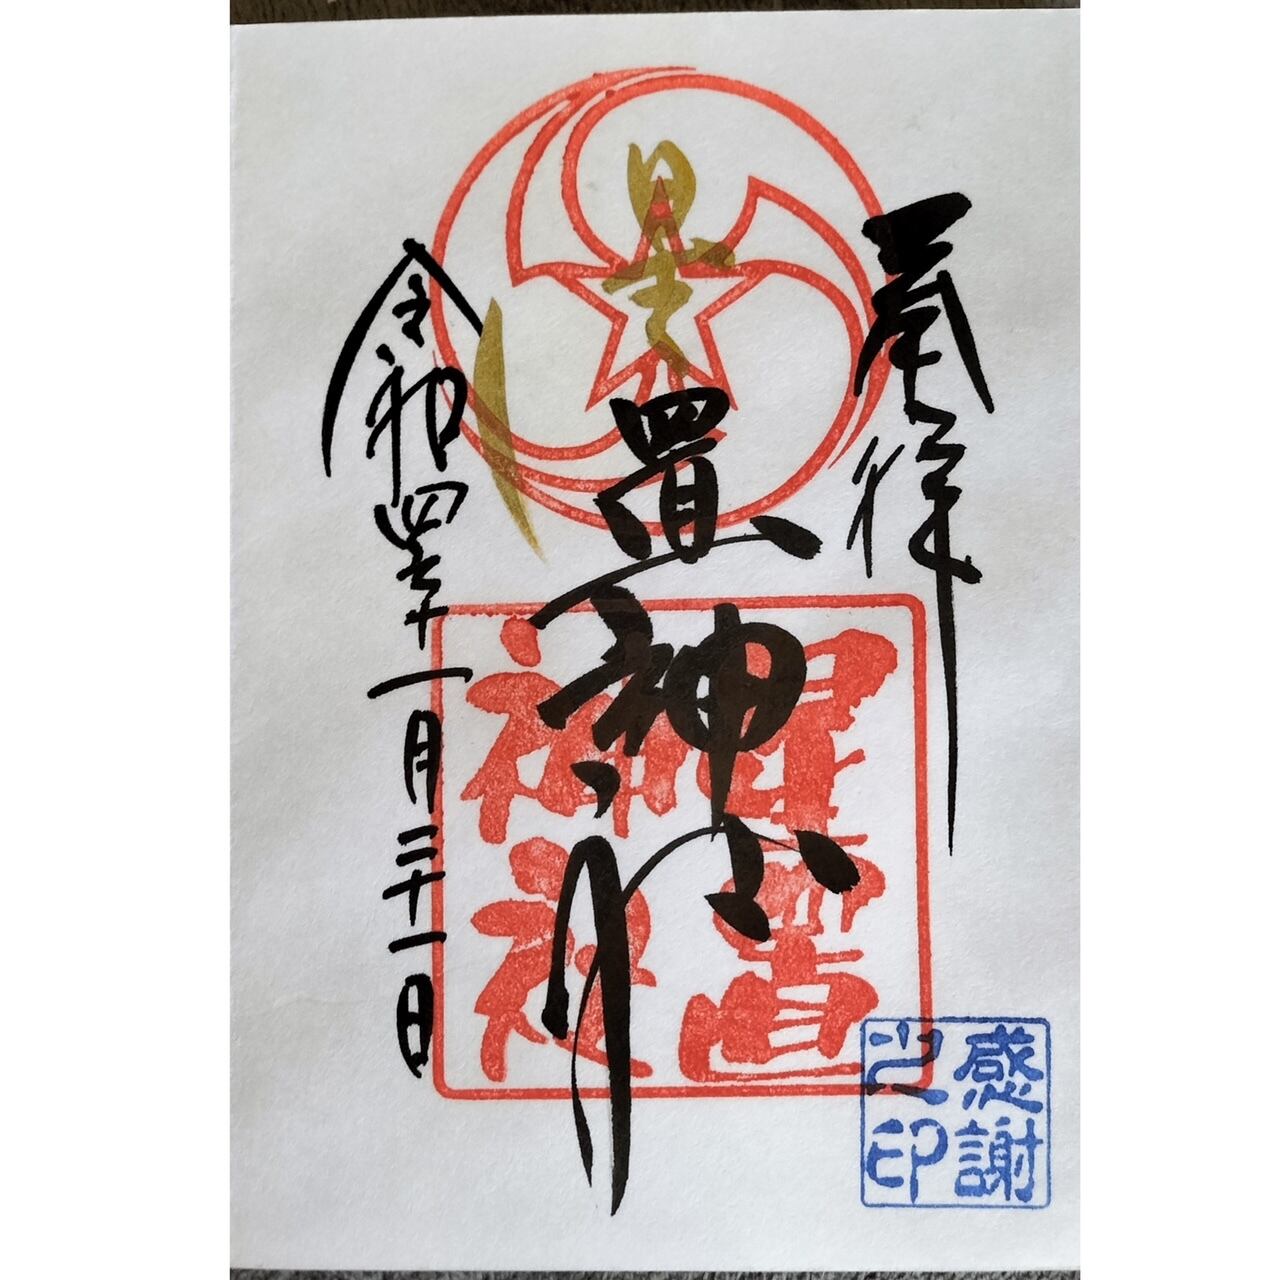 奉拝
星置神社
令和四年十一月二十一日
星置
神社
感謝
之印